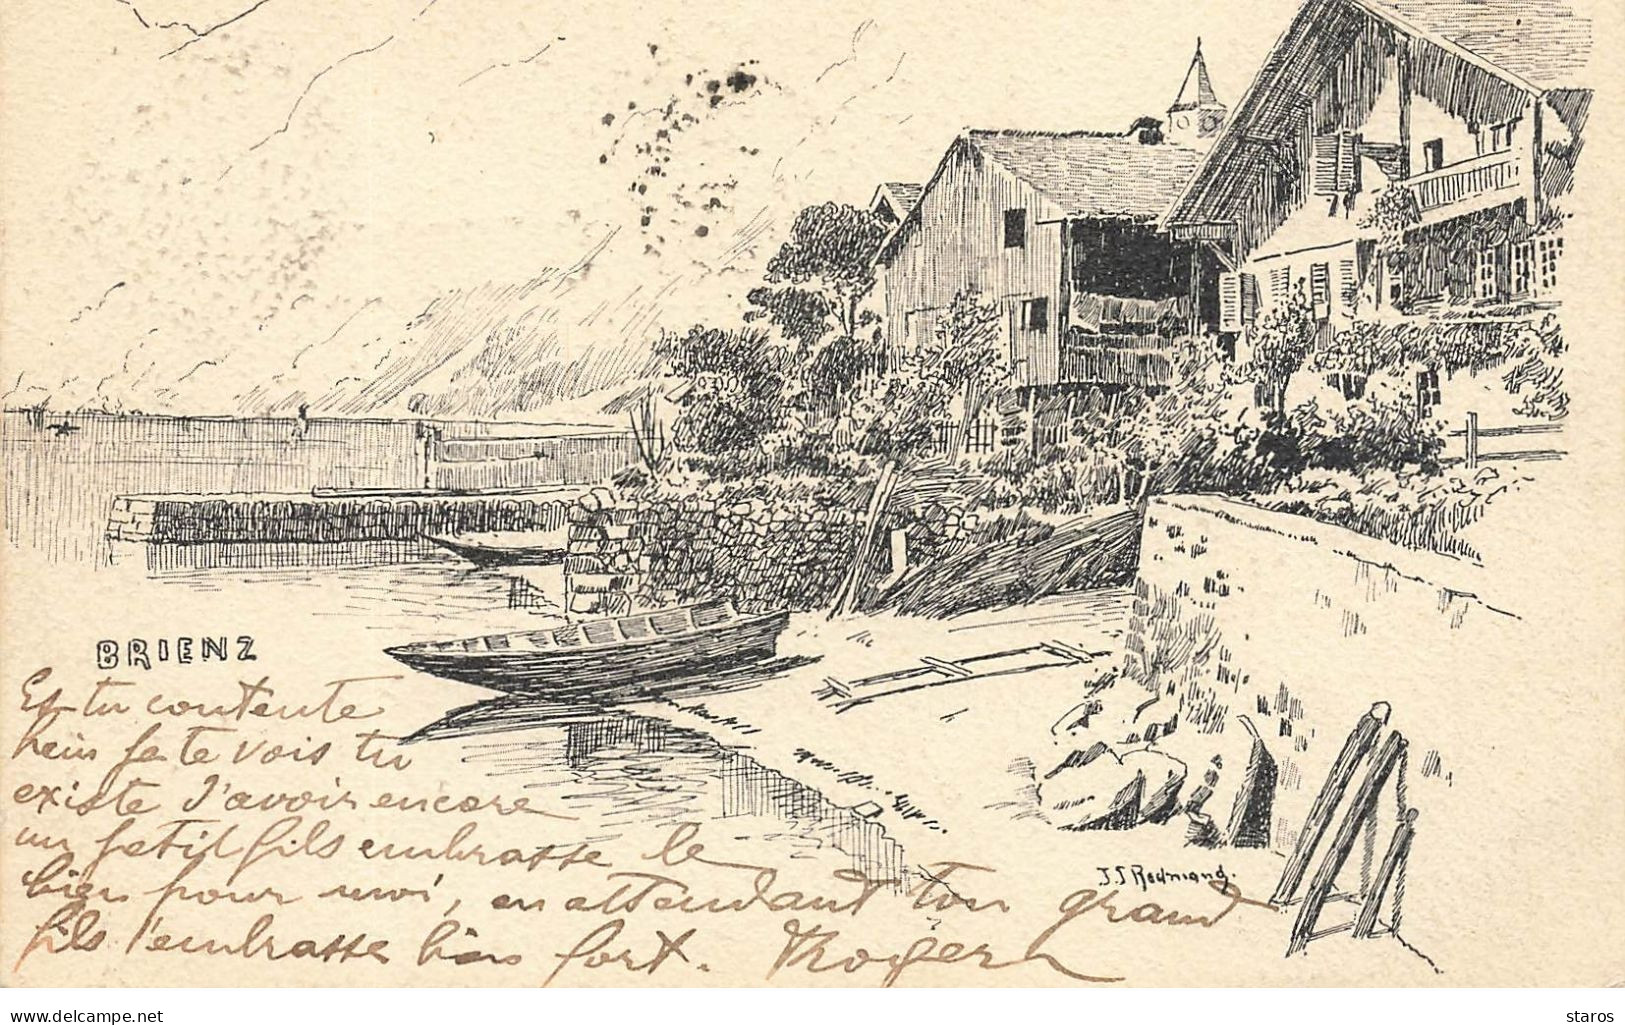 BRIENZ
Es tu contente
hein je te vois tu
existe d'avoir encore
un petit fils embrasse le
bien pour moi, en attendant ton grand
fils t'embrasse bien fort. Roger
J.J Redmond.
www.delcampe.net
staros